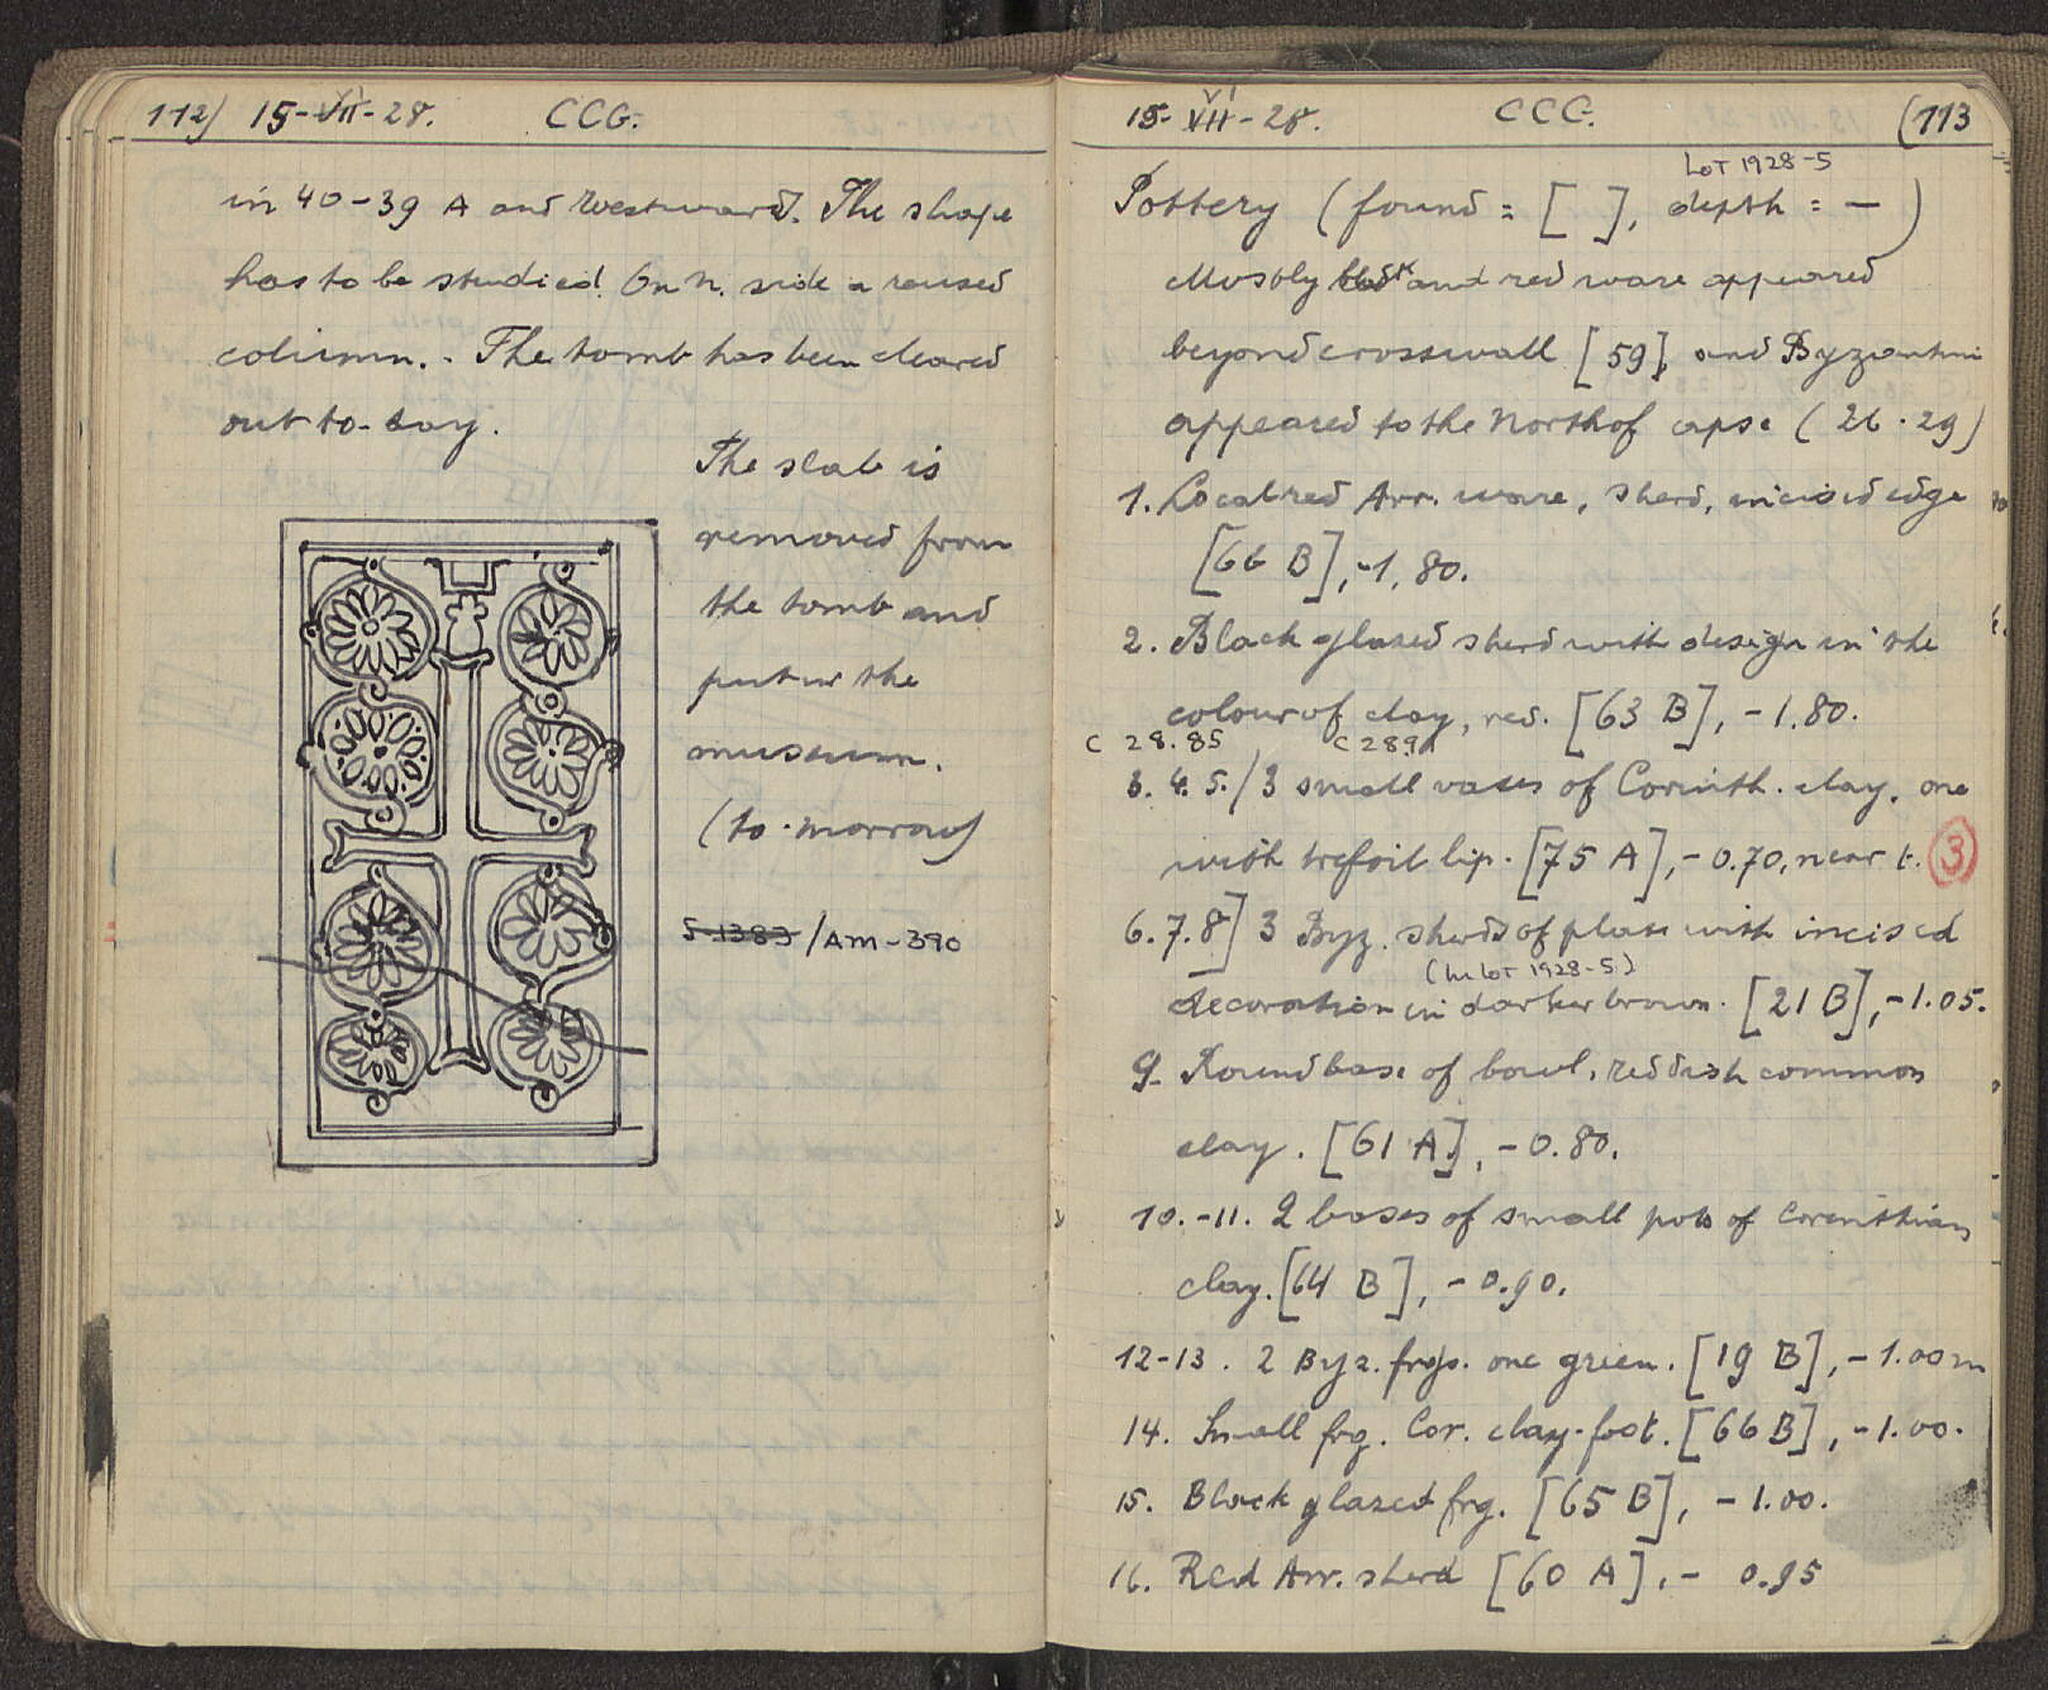 112) 15-VII-28. CCG.
VI
in 40-39 A and Westward. The shape
has to be studied. On N. side a reused
column.- The tomb has been cleared
out to-day.
The slab is
removed from
the tomb and
put in the
museum.
(to-morrow)
S 1383 / AM-390
15-VII-28. CCG. (113
VI
Lot 1928-5
Pottery (found = [ ], depth = -)
Mostly black and red ware appeared
beyond crosswall [59], and Byzantini
appeared to the North of apse (26.29)
1. Local red Arr. ware, sherd, incised edge
[66 B], -1,80.
2. Black glazed sherd with design in the
colour of clay, red. [63 B], -1.80.
C 28.85 C 289
3. 4. 5./3 small vases of Corinth. clay, one
with trefoil lip. [75 A], -0.70, near t. 3
6.7.8] 3 Byz. sherds of plate with incised
(in lot 1928-5)
decoration in darker brown. [21 B], -1.05.
9. Round base of bowl, reddish common
clay. [61 A], -0.80.
10.-11. 2 bases of small pots of Corinthian
clay. [64 B], -0.90.
12-13. 2 Byz. frgs. one green. [19 B], -1.00m
14. Small frg. Cor. clay-foot. [66 B], -1.00.
15. Black glazed frg. [65 B], -1.00.
16. Red Arr. sherd [60 A], - 0.95